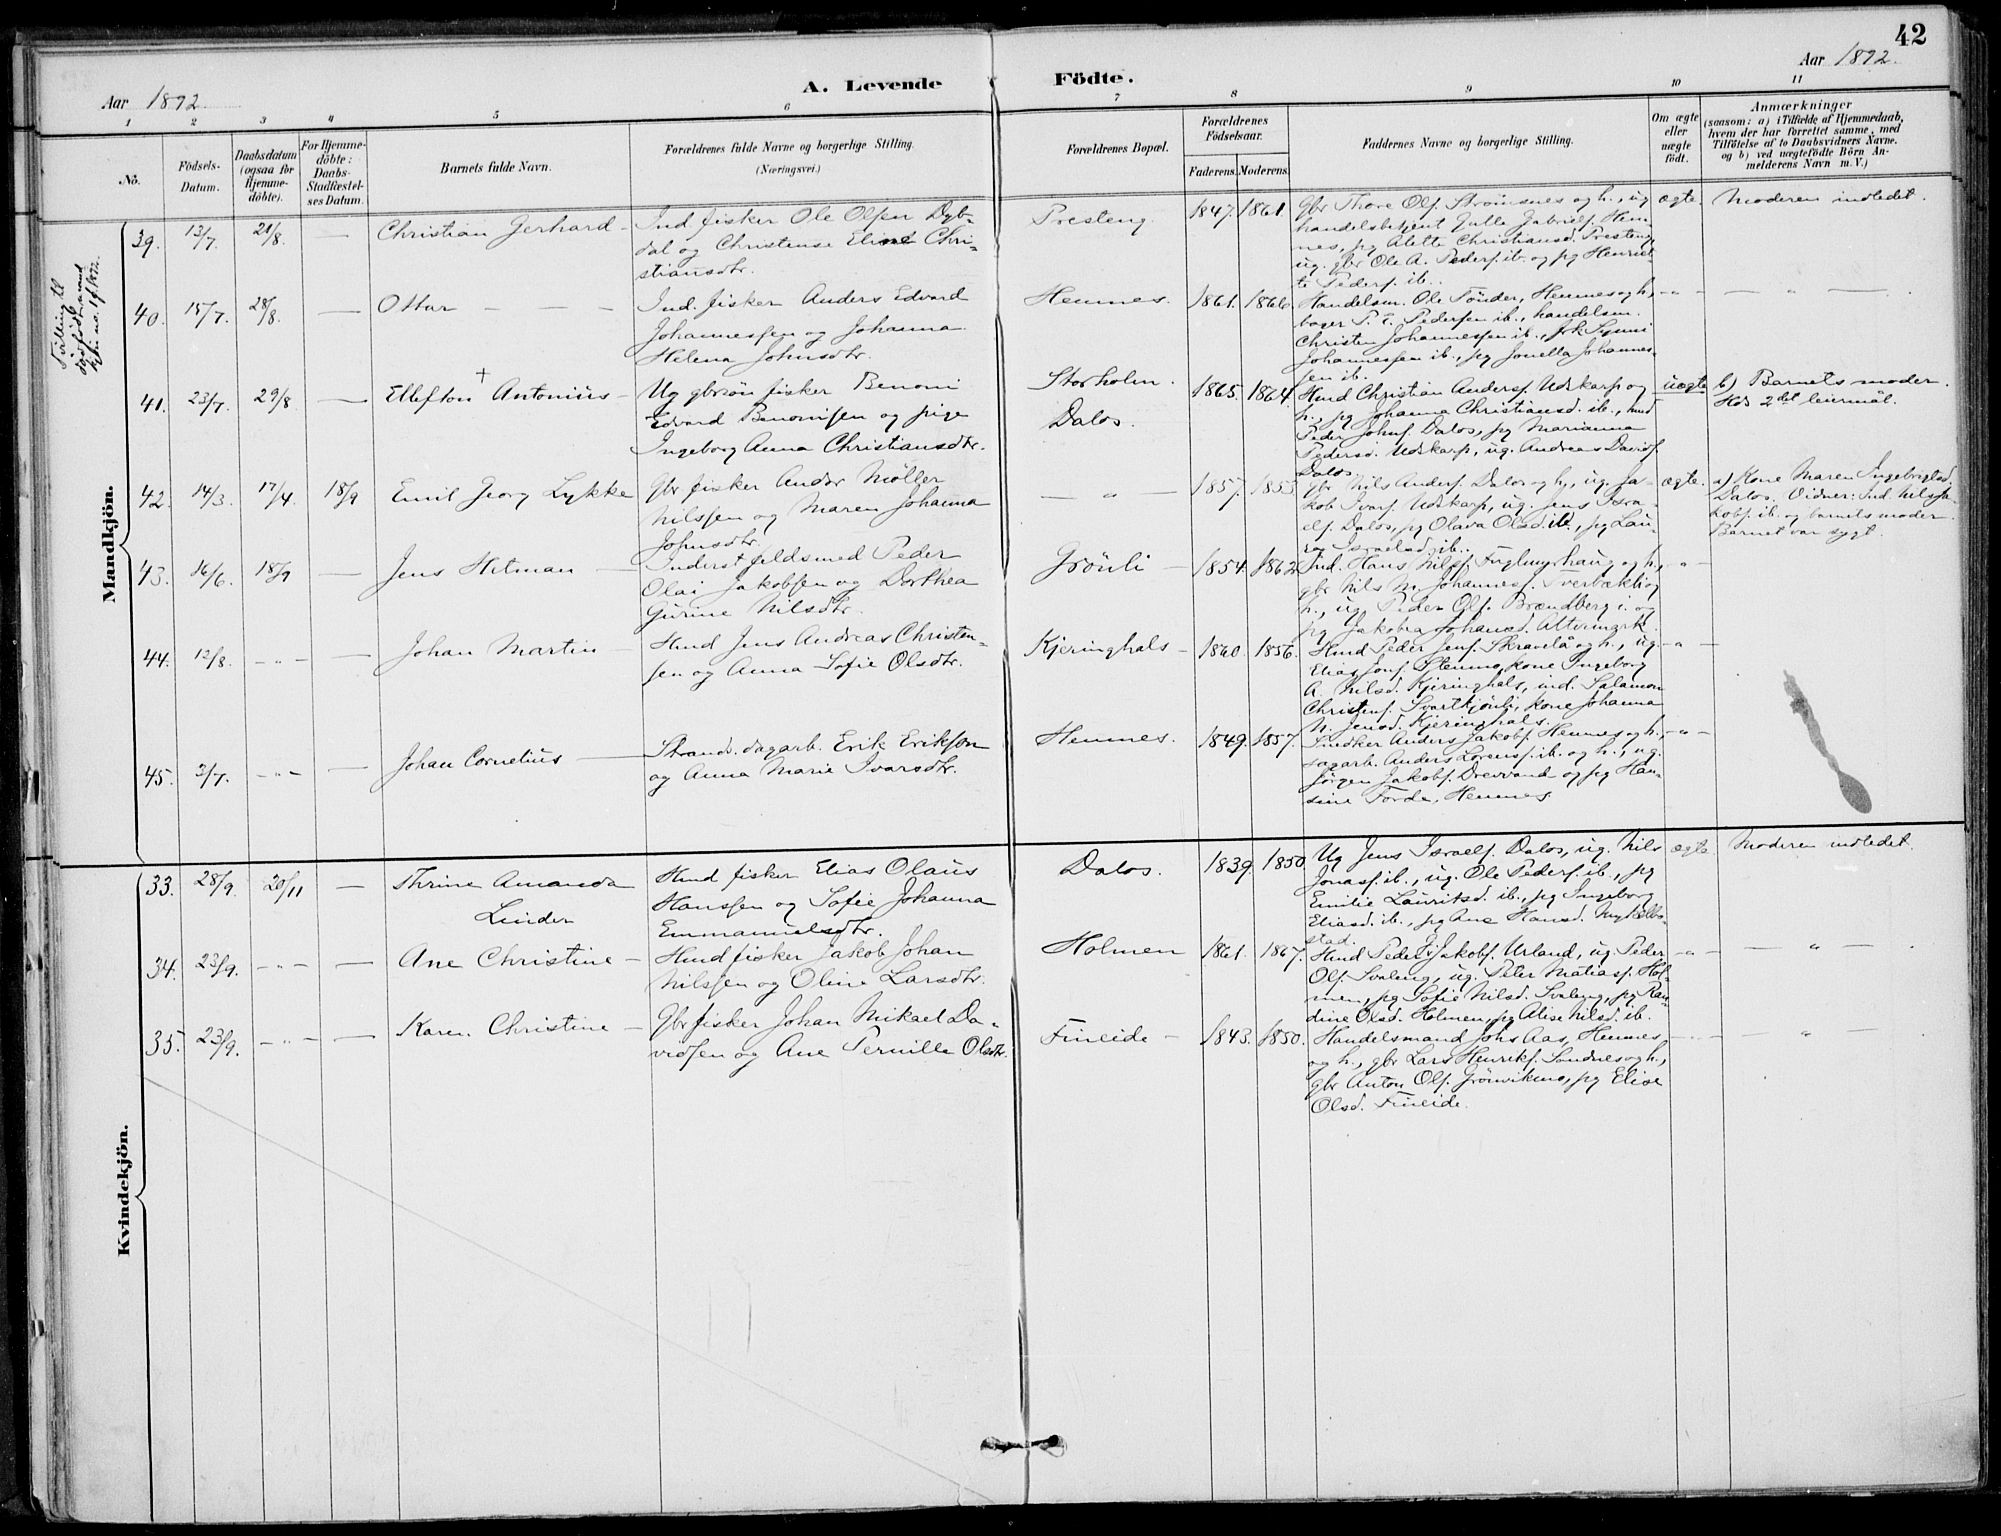 42
Aar 1892.
A. Levende Födte.
Aar 1892.
1 2 3 4 5 6 7 8 9 10 11
No.
Födsels-
Datum.
Daabsdatum
(ogsaa for
Hjemme-
döbte).
For Hjemme-
döbte:
Daabs-
Stadfæstel-
ses Datum.
Barnets fulde Navn.
Forældrenes fulde Navne og borgerlige Stilling.
(Næringsvei.)
Forældrenes Bopæl.
Forældrenes
Födselsaar.
Faderens. Moderens.
Faddernes Navne og borgerlige Stilling.
Om ægte
eller
uægte
födt.
Anmærkninger
(saasom: a) i Tilfælde af Hjemmedaab,
hvem der har forrettet samme, med
Tilföielse af to Daabsvidners Navne.
og b) ved uægtefödte Börn An-
melderens Navn m. V.)
Mandkjön.
39. 13/7. 21/8. — Christian Gerhard —
Ind. fisker Ole Olsen Dyb-
dal og Christense Eline Chri-
stiansdtr.
Presteng. 1847. 1861.
Gbr Thore Olf. Strömsnes og h., ug
handelsbetjent Jutle Gabrielf. Hem-
nes, pg Alette Christiansd. Presteng,
ug. gbr Ole A. Pedersf. ib. og pg Henriet-
te Pedersf. ib.
ægte. Moderen indledet.
40. 15/7. 28/8. — Ottar — — —
Ind. fisker Anders Edvard
Johannessen og Johanna
Helena Johnsdtr.
Hemnes. 1861. 1866.
Handelsm. Ole Tönder, Hemnes og h.,
bager P. E. Pedersen ib., handelsm.
Christen Johannessen ib., frk Signni
Johannessen ib., pg Jonetta Johannes-
sen ib.
-"- — " —
41. 23/7. 29/8 — Ellefton + Antonius —
Ug gbrsön fisker Benoni
Edvard Benonisen og pige
Ingeborg Anna Christiansdtr.
Storholm.
Dalos.
1865. 1864.
Hmd Christian Andersf. Udskarp og
h., pg Johanna Christiansd. ib., hmd
Peder Johnf. Dalos, pg Marianna
Pedersd. Udskarp, ug. Andreas Davidf.
Dalos.
uægte b) Barnets moder.
Hds 2det leiermål.
42. 14/3. 17/4. 18/9 Emil Georg Lykke
Gbr fisker Andor Möller
Nilssen og Maren Johanna
Johnsdtr.
— " — 1857. 1855
Gbr Nils Andersf. Dalos og h., ug. Ja-
kob Ivarf. Udskarp, ug. Jens Isra-
elf. Dalos, pg Olava Olsd. ib., pg Lau-
ra Israelsd. ib.
ægte. a) Kone Maren Ingebrigtsd.
Dalos. Vidner: Ind. Nils Ja-
kobf. ib. og barnets moder.
Barnet var sygt.
43. 16/6. 18/9 — Jens Hitman —
Inderst feldsmed Peder
Olai Jakobsen og Dorthea
Gurine Nilsdtr.
Grönli — 1854. 1862
Ind. Hans Nilsf. Fuglmyrhaug og h.,
gbr Nils M. Johannesf. Tverbækli og
h., ug. Peder Olf. Brændberg i. og
pg Jakobea Johansd. Alteringrk.
-"-
44. 12/8. -"- — Johan Martin —
Hmd Jens Andreas Christen-
sen og Anna Sofie Olsdtr.
Kjeringhals — 1860. 1856.
Hmd Peder Jensf. Skravlå og h., ug.
Elias Jonf. Stenmo, kone Ingeborg
A. Nilsd. Kjeringhals, ind. Salamon
Christenf. Svarttjönli, kone Johanna
N. Jensd. Kjeringhals.
-"-
45. 3/7. -"- — Johan Cornelius —
Strands. dagarb. Erik Eriksen
og Anna Marie Ivarsdtr.
Hemnes. 1849. 1857.
Snedker Anders Jakobf. Hemnes og h.,
dagarb. Anders Lorensf. ib. og h., ug.
Jörgen Jakobf. Drevvand og pg Han-
sine Forde, Hemnes.
-"-
Kvindekjön.
33. 28/9. 20/11 — Thrine Amanda
Linder
Hmd fisker Elias Olaus
Hanssen og Sofie Johanna
Emmanuelsdtr.
Dalos. 1839. 1850.
Ug Jens Israelf. Dalos, ug. Nils
Jonasf. ib., ug. Ole Pedersf. ib., pg
Emilie Lauritsd. ib., pg Ingeborg
Eliasd. ib., pg Ane Hansd. Myklebo-
stad.
ægte Moderen indledet.
34. 23/9. -"- — Ane Christine —
Hmd fisker Jakob Johan
Nilssen og Oline Larsdtr.
Holmen 1861. 1867.
Hmd Peder Jakobf. Urland, ug. Peder
Olf. Svaleng, ug. Peter Matiasf. Hol-
men, pg Sofie Nilsd. Svaleng, pg Ran-
dine Olsd. Holmen, pg Alise Nilsd. ib.
-"- — " —
35. 23/9. -"- — Karen Christine —
Gbr fisker Johan Mikael Da-
vidsen og Ane Pernille Olsdtr.
Fineide — 1843. 1850.
Handelsmand Johs Aas, Hemnes
og h., gbr Lars Henrikf. Sandnes og h.,
gbr Anton Olf. Grönvikmo, pg Elise
Olsd. Fineide.
-"- — " —